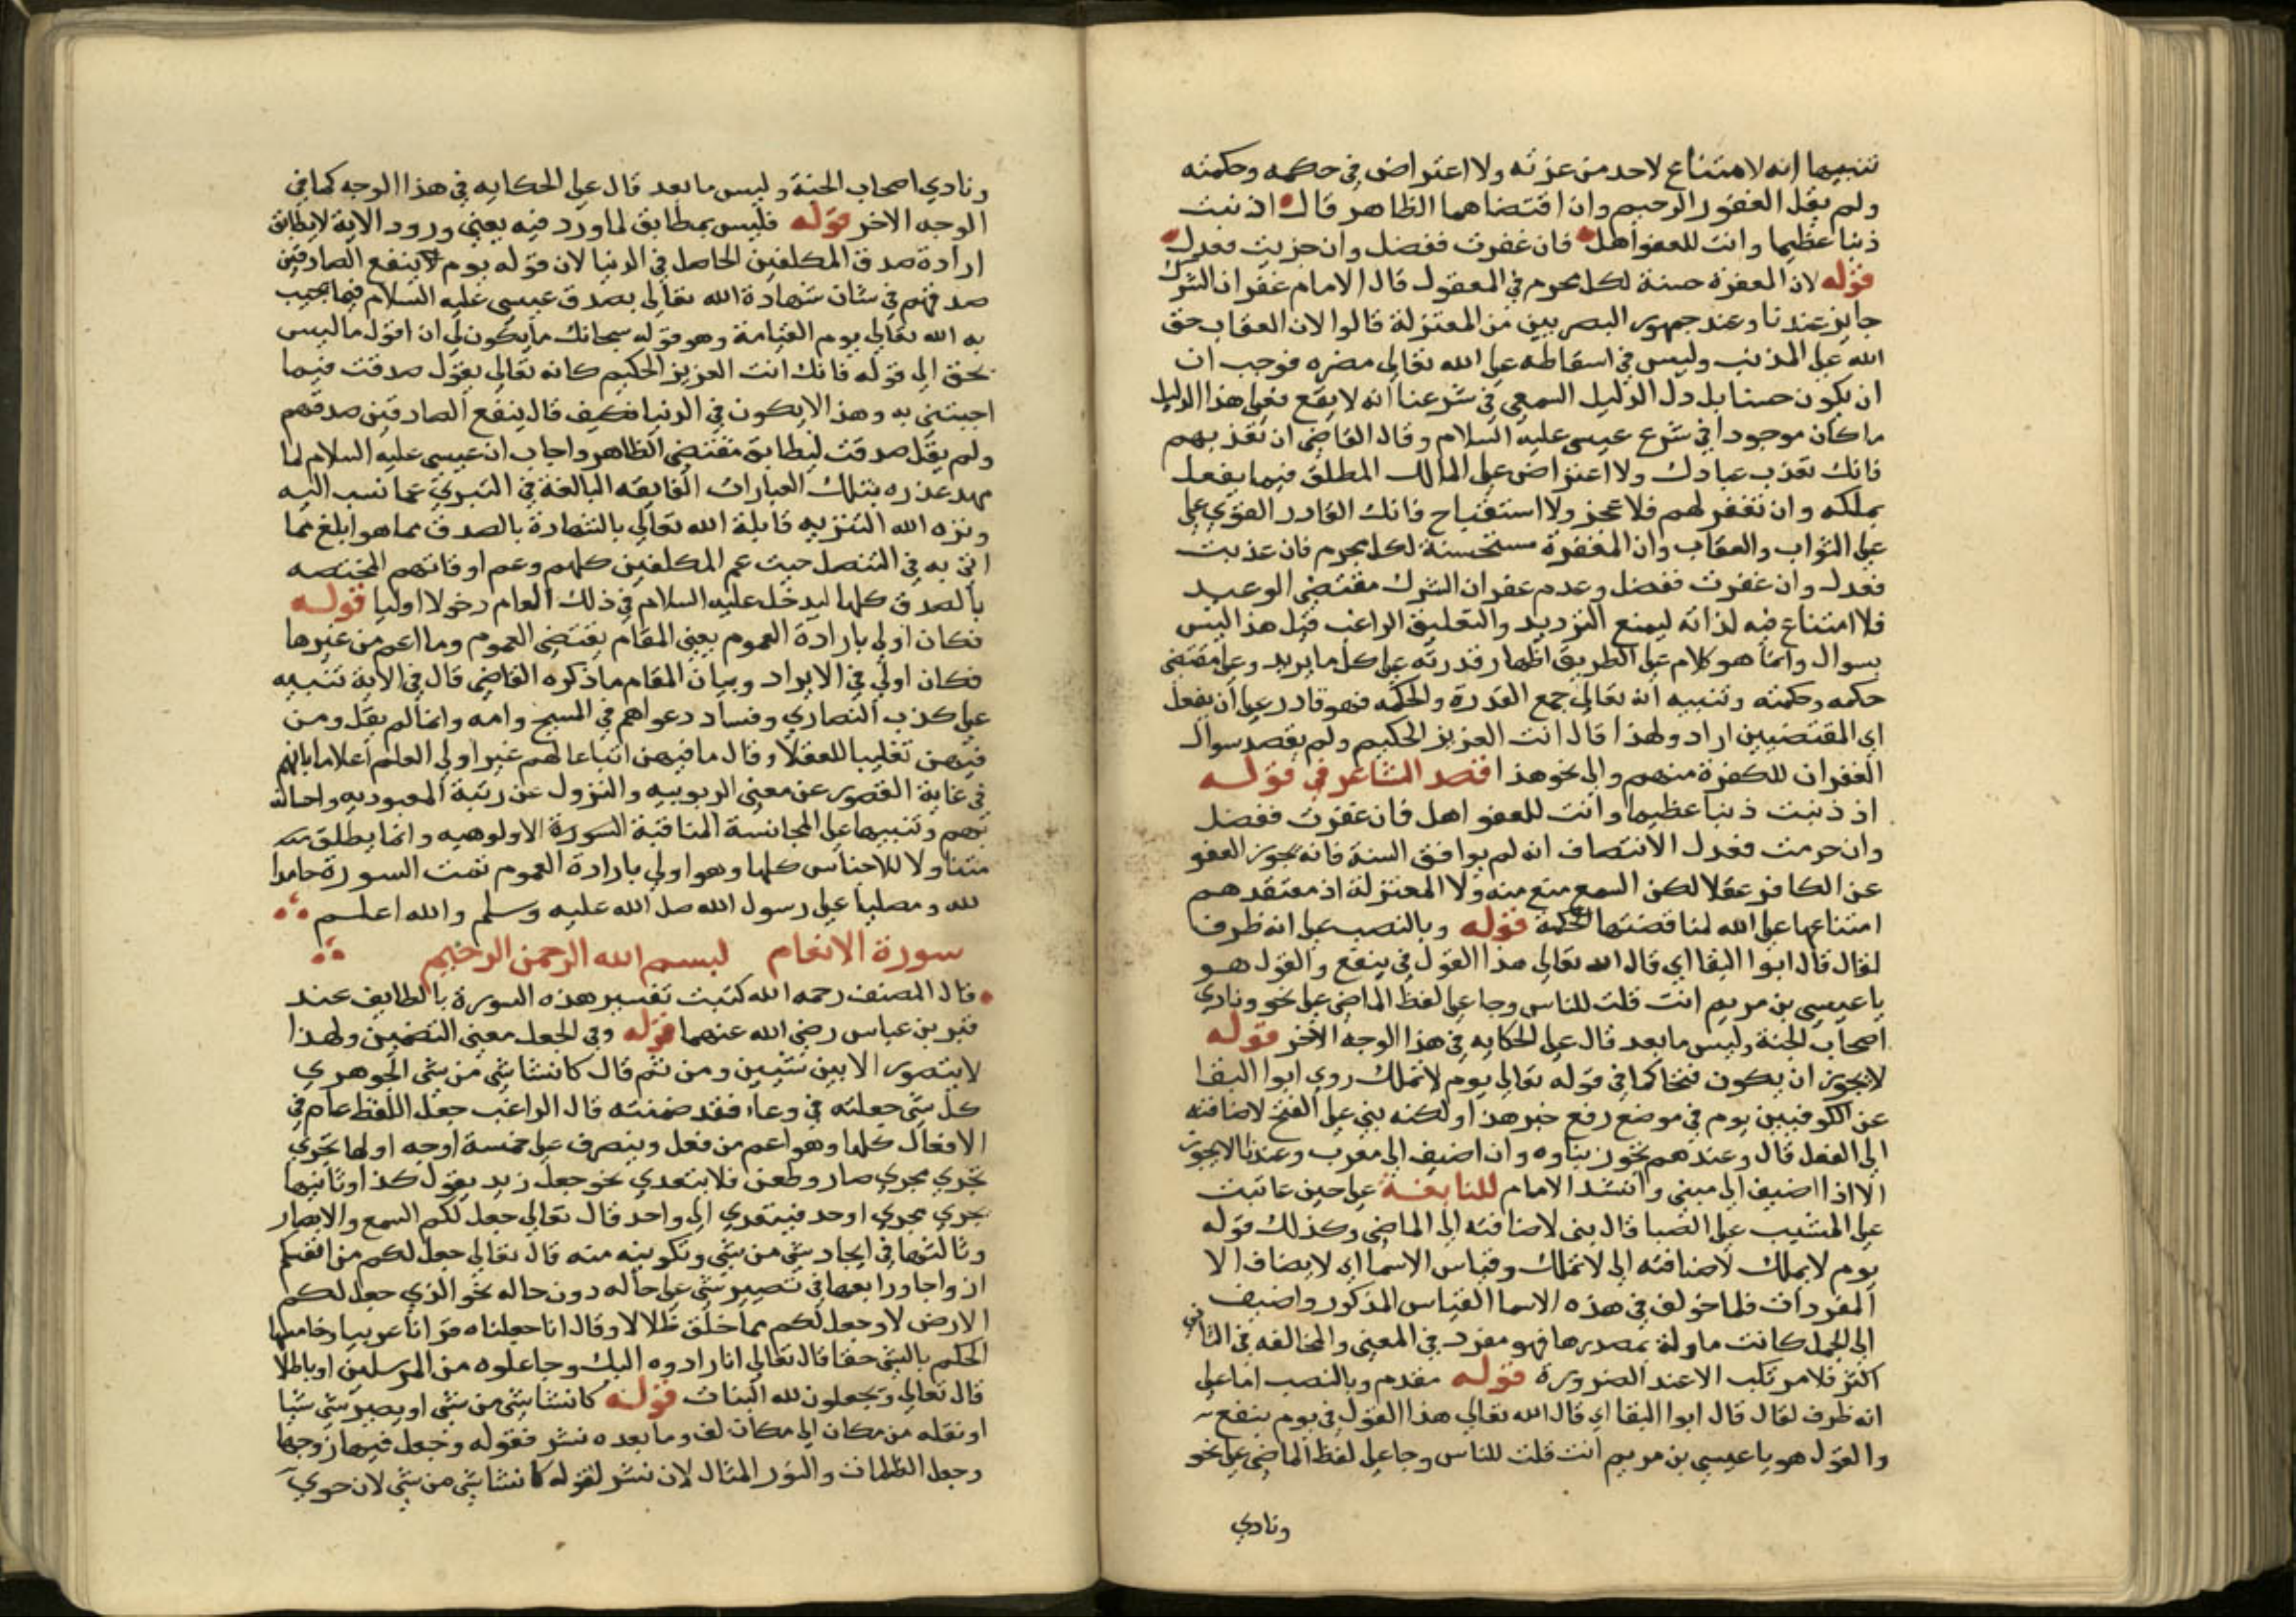 تنبيها انه لا امتناع لاحد من عزته ولا اعتراض في حكمه وحكمته
ولم يقل الغفور الرحيم وان اقتضاهما الظاهر قال اذنبت
ذنبا عظيما وانت للعفو اهل فان غفرت ففضل وان جزيت فعدل
قوله لان المغفرة حسنة لكل مجرم في المعقول قال الامام غفران الشرك
جايز عندنا وعند جمهور البصريين من المعتزلة قالوا لان العقاب حق
الله على المذنب وليس في اسقاطه على الله تعالى مضره فوجب ان
ان يكون حسنا بل دل الدليل السمعي في شرعنا انه لا يقع فعلى هذا الدليل
ما كان موجودا في شرع عيسى عليه السلام وقال القاضي ان تعذبهم
فانك تعذب عبادك ولا اعتراض على المالك المطلق فيما يفعل
بملكه وان تغفر لهم فلا عجز ولا استقباح فانك القادر القوي على
على الثواب والعقاب وان المغفرة مستحسنة لكل مجرم فان عذبت
فعدل وان غفرت ففضل وعدم غفران الشرك مقتضى الوعيد
فلا امتناع فيه لذاته ليمنع الترديد والتعليق الراغب قيل هذا ليس
بسوال وانما هو كلام على الطريق اظهار قدرته على كل ما يريد وعلى مقتضى
حكمه وحكمته وتنبيه انه تعالى جمع القدرة والحكمه فهو قادر على ان يفعل
اي المقتضيين اراد ولهذا قال انت العزيز الحكيم ولم يقصد سوال
الغفران للكفرة منهم والى نحو هذا قصد الشاعر في قوله
اذ ذنبت ذنبا عظيما وانت للعفو اهل فان غفرت ففضل
وان حرمت فعدل الانتصاف انه لم يوافق السنة فانه يجوز العفو
عن الكافر عقلا لكن السمع منع منه ولا المعتزلة اذ معتقدهم
امتناعها على الله لمناقضتها الحكمة قوله وبالنصب على انه ظرف
لقال قال ابوا البقا اي قال الله تعالى هذا القول في ينفع والقول هو
يا عيسى بن مريم انت قلت للناس وجا على لفظ الماضي على نحو ونادي
اصحاب الجنة وليس ما بعد قال على الحكايه في هذا الوجه الاخر قوله
لا يجوز ان يكون فتحا كما في قوله تعالى يوم لا تملك روي ابوا البقا
عن الكوفيين يوم في موضع رفع خبر هذا ولكنه بني على الفتح لاضافته
الى الفعل قال وعندهم يجوز بناوه وان اضيف الى معرب وعندنا لا يجوز
الا اذا اضيف الى مبني وانشد الامام للنابغة على حين عاتبت
على المشيب على الصبا قال بنى لاضافته الى الماضي وكذلك قوله
يوم لا يملك لاضافته الى لا تملك وقياس الاسما اي لا يضاف الا
المفردات فلما خولف في هذه الاسما القياس المذكور واضيف
الى الجمل كانت ماولة بمصدرها فهو مفرد في المعنى والمخالفه في الثاني
اكثر فلا مرتكب الا عند الضرورة قوله مقدم وبالنصب اما على
انه ظرف لقال قال ابوا البقا اي قال الله تعالى هذا القول في يوم ينفع
والقول هو يا عيسى بن مريم انت قلت للناس وجا على لفظ الماضي على نحو
ونادي
ونادي اصحاب الجنة وليس ما بعد قال على الحكايه في هذا الوجه كما في
الوجه الاخر قوله فليس بمطابق لما ورد فيه يعني ورود الاية لا يطابق
ارادة صدق المكلفين الحاصل في الدنيا لان قوله يوم ينفع الصادقين
صدقهم في شان شهادة الله تعالى بصدق عيسى عليه السلام فيما يجيب
به الله تعالى يوم القيامة وهو قوله سبحانك ما يكون لي ان اقول ما ليس
بحق الى قوله فانك انت العزيز الحكيم كانه تعالى يقول صدقت فيما
اجبتني به وهذا لا يكون في الدنيا فكيف قال ينفع الصادقين صدقهم
ولم يقل صدقت ليطابق مقتضى الظاهر واجاب ان عيسى عليه السلام لما
مهد عذره بتلك العبارات الفايقه البالغة في التبري عما نسب اليه
ونزه الله التنزيه قابلة الله تعالى بالشهادة بالصدق بما هو ابلغ مما
اتى به في التنصل حيث عم المكلفين كلهم وعم اوقاتهم المختصه
بالصدق كلها ليدخل عليه السلام في ذلك العام دخولا اوليا قوله
فكان اولي بارادة العموم يعني المقام يقتضي العموم وما اعم من غيرها
فكان اولى في الايراد وبيان المقام ما ذكره القاضي قال في الاية تنبيه
على كذب النصاري وفساد دعواهم في المسيح وامه وانما لم يقل ومن
فيهن تغليبا للعقلا وقال ما فيهن اتباعا لهم غير اولي العلم اعلاما بانهم
في غاية القصور عن معنى الربوبيه والنزول عن رتبة المعبوديه واهانة
بهم وتنبيها على المجانسة المنافية السورة الاولوهيه وانما يطلق
متناولا للاجناس كلها وهو اولي بارادة العموم تمت السورة حامدا
لله ومصليا على رسول الله صلى الله عليه وسلم والله اعلم
سورة الانعام بسم الله الرحمن الرحيم
قال المصنف رحمه الله كتبت تفسير هذه السورة بالطايف عند
قبر بن عباس رضي الله عنهما قوله وفي الجعل معنى التضمين ولهذا
لا يتصور الا بين شيئين ومن ثم قال كانشا شي من شي الجوهري
كل شي جعلته في وعاء فقد ضمنته قال الراغب جعل اللفظ عام في
الافعال كلها وهو اعم من فعل ويتصرف على خمسة اوجه اولها يجري
يجري مجري صار وطعن فلا يتعدي نحو جعل زيد يقول كذا وثانيها
يجري مجري اوجد فيتعدي الى واحد قال تعالى جعل لكم السمع والابصار
وثالثها في ايجاد شي من شي وتكوينه منه قال تعالى جعل لكم من انفسكم
ازواجا ورابعها في تصيير شي على حاله دون حاله نحو الذي جعل لكم
الارض لا وجعل لكم مما خلق ظلالا وقال انا جعلناه قرانا عربيا وخامسها
الحكم بالشي حقا قال تعالى انا رادوه اليك وجاعلوه من المرسلين او باطلا
قال تعالى ويجعلون لله البنات قوله كانشا شي من شي او يصير شي شيا
او نقله من مكان الى مكان لف وما بعده نشر فقوله وجعل فيها زوجها
وجعل الظلمات والنور المثال لان نشر لقوله كانشا شي من شي لان حوي